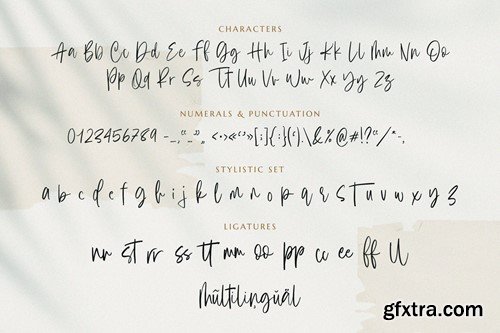 CHARACTERS
Aa Bb Cc Dd Ee Ff Gg Hh Ii Jj Kk Ll Mm Nn Oo
Pp Qq Rr Ss Tt Uu Vv Ww Xx Yy Zz
NUMERALS & PUNCTUATION
0123456789 -–,“”„ <•>«‹›»[;]{:}(‘).\&%@#!?“/*-,
STYLISTIC SET
a b c d e f g h i j k l m n o p q r s t u v w x y z
LIGATURES
nn st rr ss tt mm oo pp cc ee ff ll
Multilingual
gfxtra.com